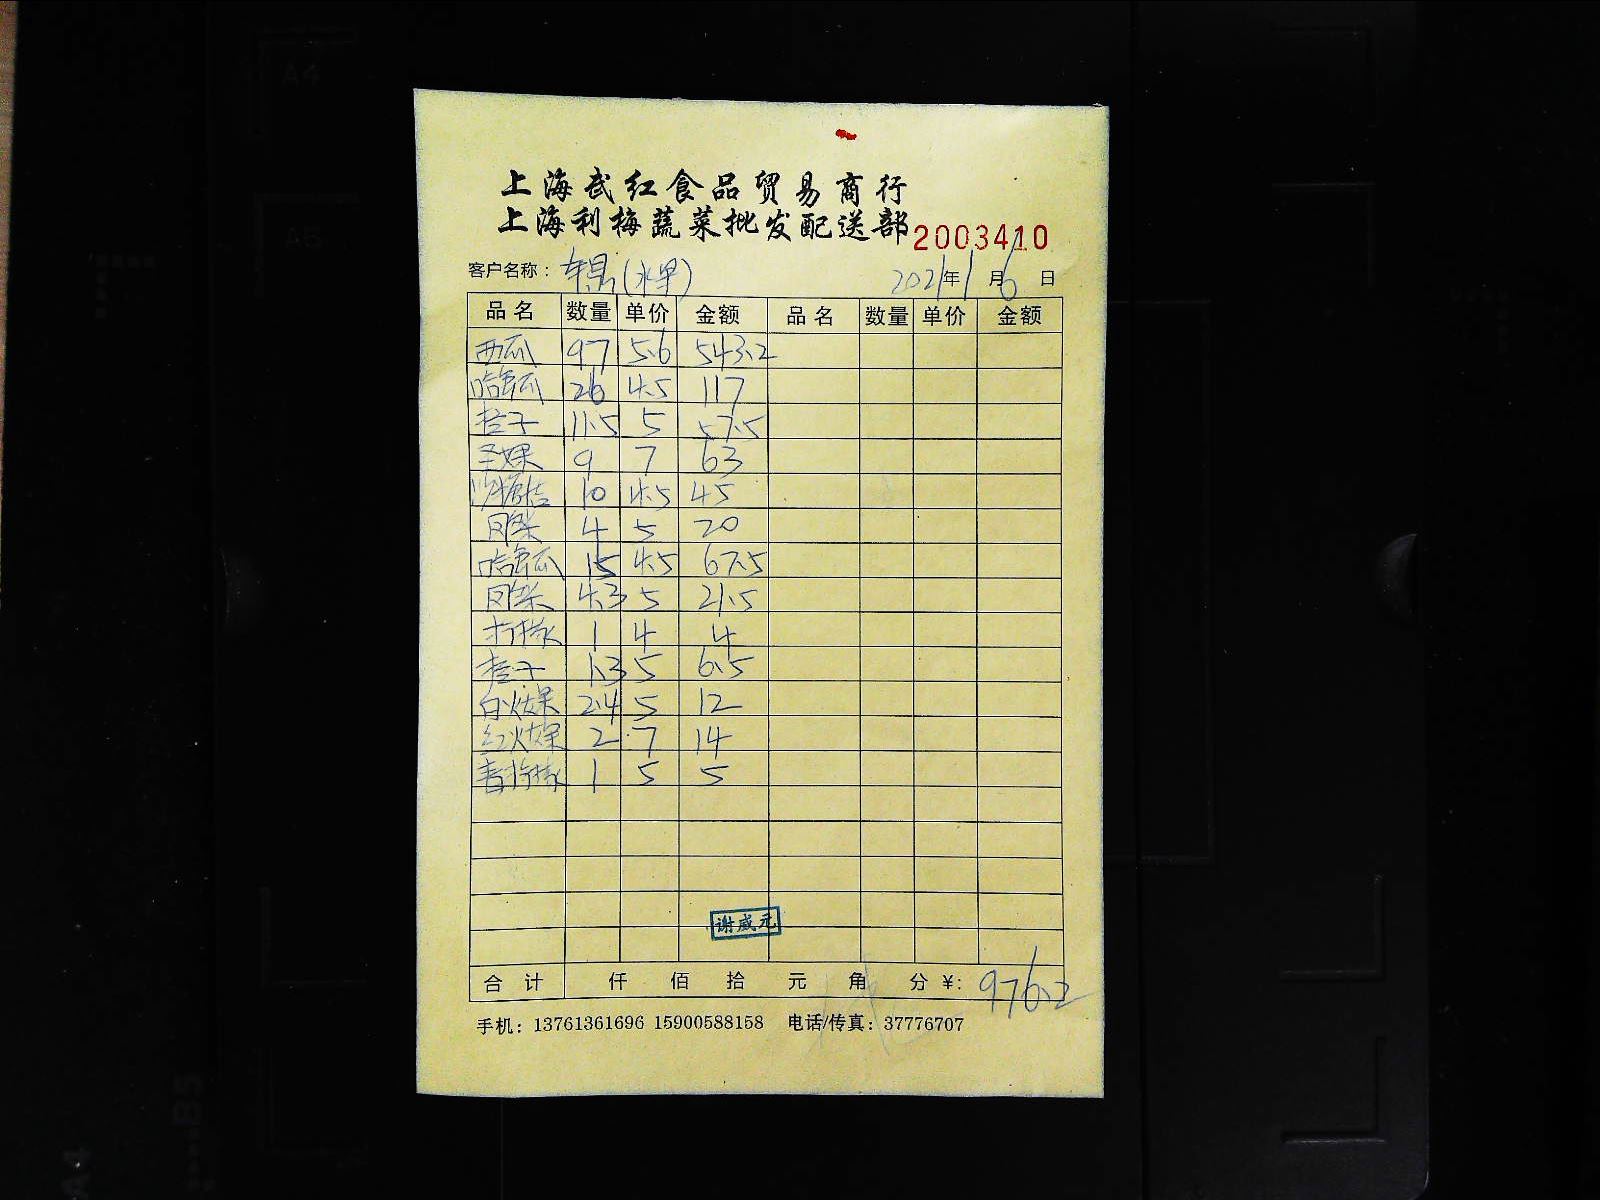 上海武红食品贸易商行
上海利梅蔬菜批发配送部 2003410
客户名称： (水果) 2021年1月6日
品名 数量 单价 金额 品名 数量 单价 金额
西瓜 97 5.6 543.2
哈密瓜 26 4.5 117
橙子 11.5 5 57.5
圣女果 9 7 63
沙糖桔 10 4.5 45
凤梨 4 5 20
哈密瓜 15 4.5 67.5
凤梨 4.3 5 21.5
柠檬 1 4 4
橙子 1.3 5 6.5
白火龙果 2.4 5 12
红火龙果 2 7 14
青柠檬 1 5 5
谢威元
合计 仟 佰 拾 元 角 分 ¥: 976.2
手机：13761361696 15900588158 电话/传真：37776707
A4
A5
B5
A4